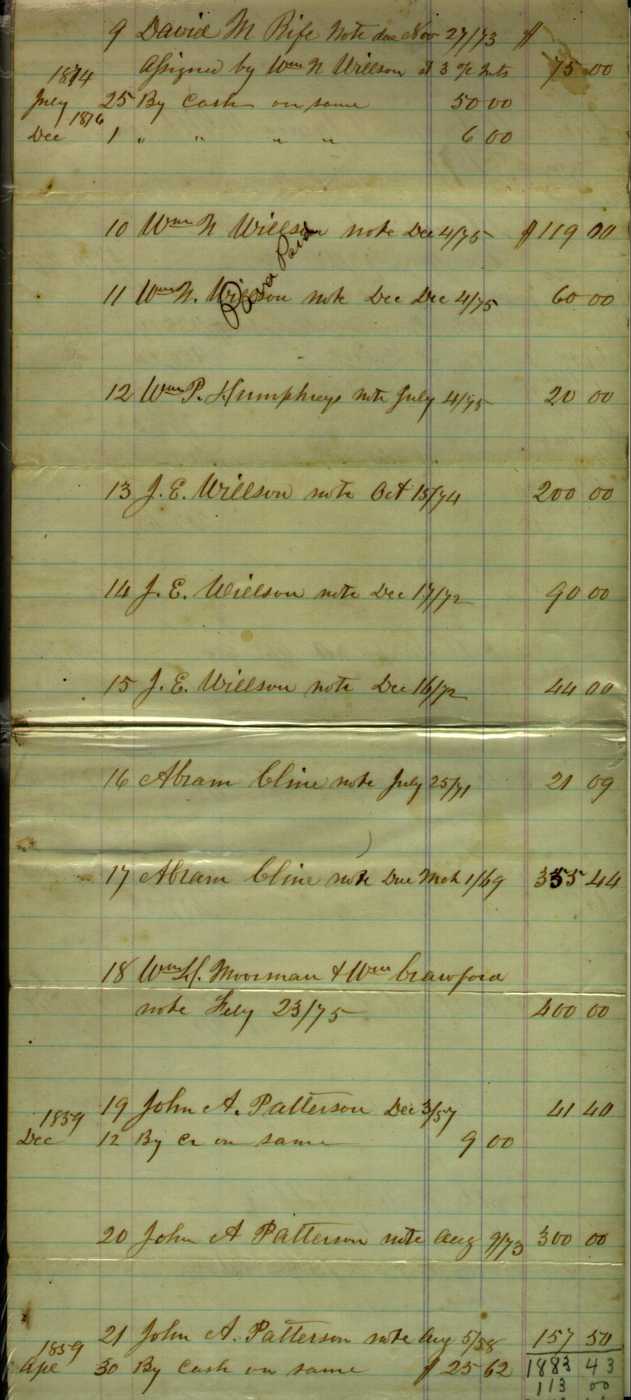 9 David M Rife Note due Nov 27/73 $
1874 Assigned by Wm N Willson at 3 % Ints 75 00
July 25 By Cash on same 50 00
1876
Dec 1 " " " " 6 00
10 Wm N Willson note Dec 4/75 $119 00
11 Wm N. Willson note Dec Dec 4/75 60 00
Paid Paid
12 Wm P. Humphreys note July 4/75 20 00
13 J. E. Willson note Oct 15/74 200 00
14 J. E. Willson note Dec 17/72 90 00
15 J. E. Willson note Dec 16/72 44 00
16 Abram Cline note July 25/71 21 09
17 Abram Cline note Due Mch 1/69 355 44
18 Wm H. Moorman & Wm Crawford
note Feby 23/75 400 00
19 John A. Patterson Dec 3/57 41 40
1859
Dec 12 By Cr on same 9 00
20 John A Patterson note Aug 9/73 300 00
21 John A. Patterson note Aug 5/58 157 50
1859
Ape 30 By Cash on same $ 25 62 1883 43
113 00